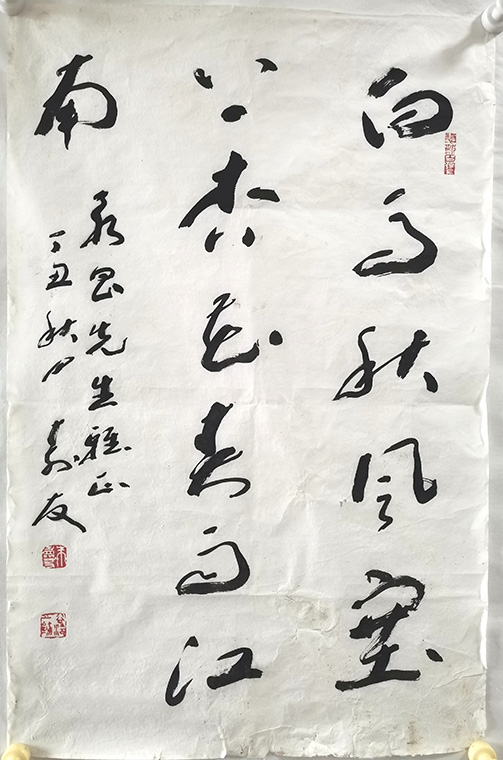 白馬秋風塞
上杏花春雨江
南
永昌先生雅正
丁丑秋月 寿友